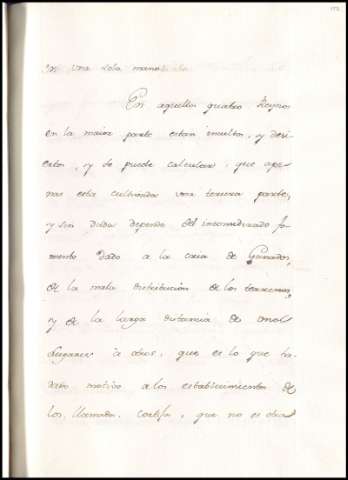 en una sola mano
En aquellos quatro Reynos
en la maior parte estan incultos, y desi-
ertos, y se puede calcular, que ape-
nas esta cultivada una tercera parte,
y sin duda depende del inconsiderado fo-
mento dado a la cria de Ganados,
de la mala distribucion de los terrenos,
y de la larga distancia de unos
Lugares à otros, que es lo que ha
dado motivo a los establecimientos de
los llamados Cortijos, que no es otra